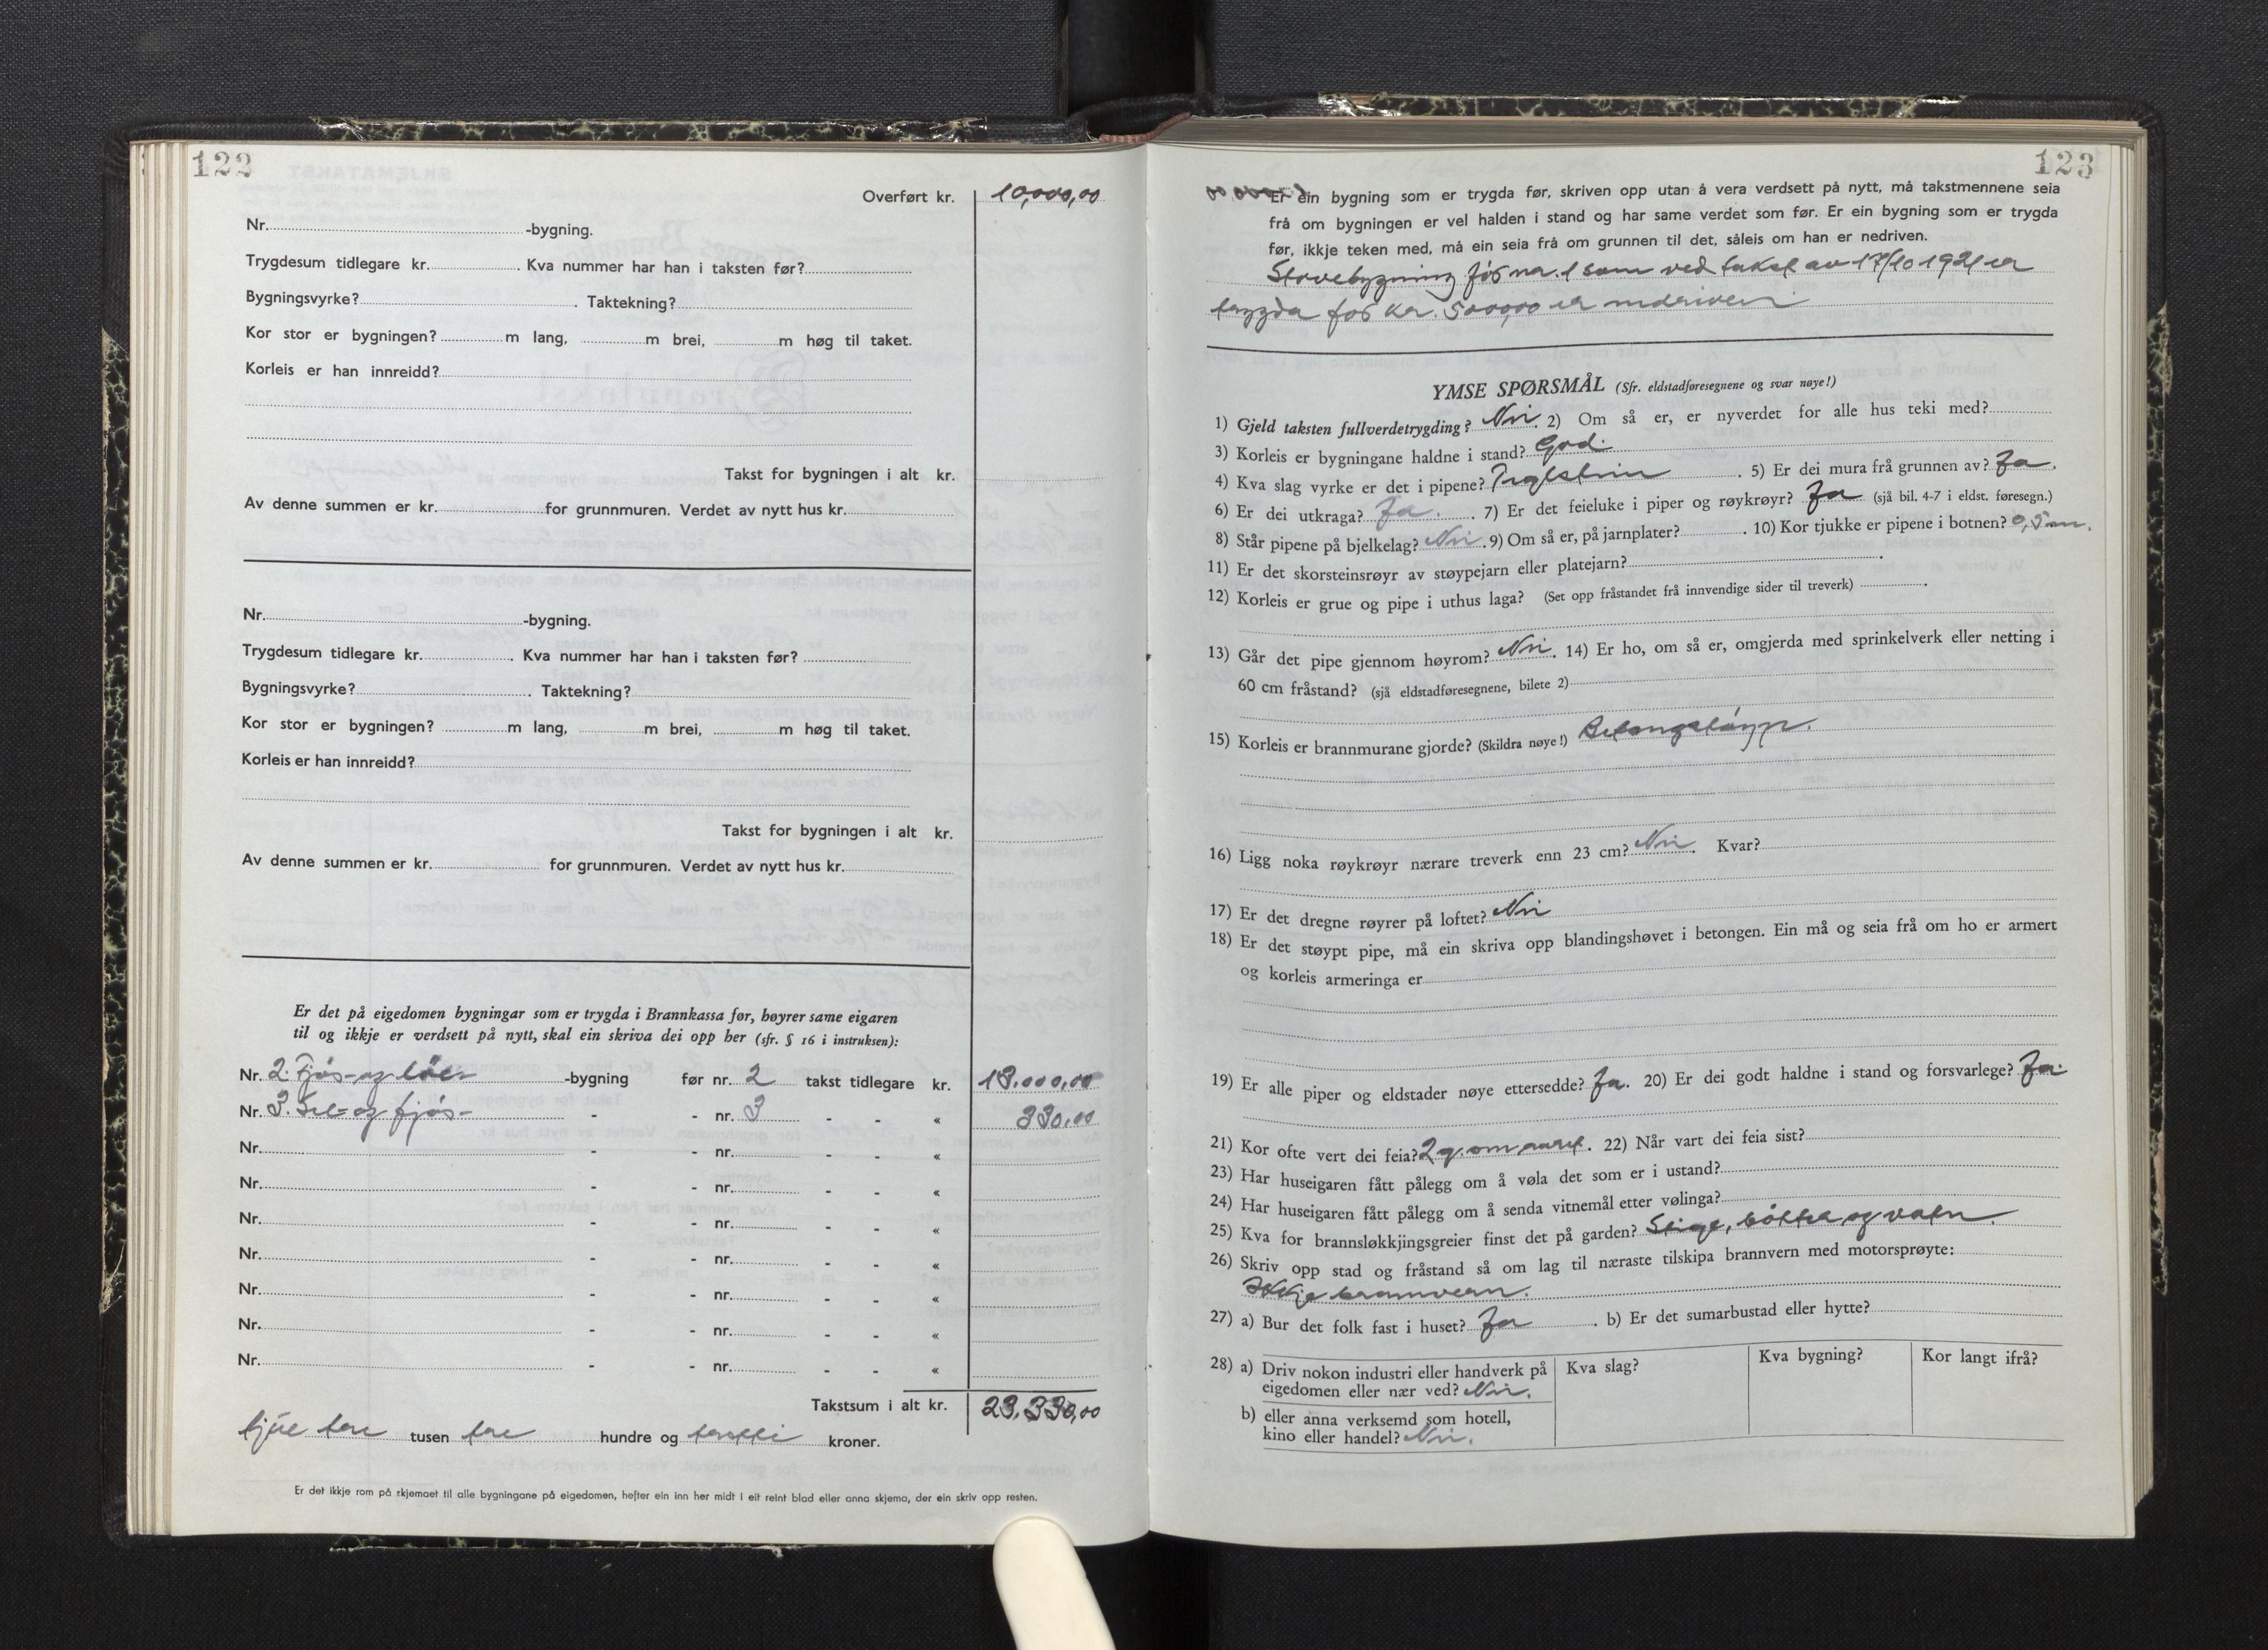 122
Overført kr. 10,000,00
Nr. -bygning.
Trygdesum tidlegare kr. . Kva nummer har han i taksten før?
Bygningsvyrke? . Taktekning?
Kor stor er bygningen? m lang, m brei, m høg til taket.
Korleis er han innreidd?
Takst for bygningen i alt kr.
Av denne summen er kr. for grunnmuren. Verdet av nytt hus kr.
Nr. -bygning.
Trygdesum tidlegare kr. . Kva nummer har han i taksten før?
Bygningsvyrke? . Taktekning?
Kor stor er bygningen? m lang, m brei, m høg til taket.
Korleis er han innreidd?
Takst for bygningen i alt kr.
Av denne summen er kr. for grunnmuren. Verdet av nytt hus kr.
Er det på eigedomen bygningar som er trygda i Brannkassa før, høyrer same eigaren
til og ikkje er verdsett på nytt, skal ein skriva dei opp her (sfr. § 16 i instruksen):
Nr. 2. Fjös- og löe- -bygning før nr. 2 takst tidlegare kr. 13.000,00
Nr. 3. Sel- og fjös- - - nr. 3 - - « 330,00
Nr. - - nr. - - «
Nr. - - nr. - - «
Nr. - - nr. - - «
Nr. - - nr. - - «
Nr. - - nr. - - «
Nr. - - nr. - - «
Nr. - - nr. - - «
Takstsum i alt kr. 23.330,00
tjue tre tusen tre hundre og tretti kroner.
Er det ikkje rom på skjemaet til alle bygningane på eigedomen, hefter ein inn her midt i eit reint blad eller anna skjema, der ein skriv opp resten.
123
Er ein bygning som er trygda før, skriven opp utan å vera verdsett på nytt, må takstmennene seia
frå om bygningen er vel halden i stand og har same verdet som før. Er ein bygning som er trygda
før, ikkje teken med, må ein seia frå om grunnen til det, såleis om han er nedriven.
Stovebygning för nr. 1 som ved takst av 17/10 1921 er
trygda for kr. 5000,00 er nedriven
YMSE SPØRSMÅL (Sfr. eldstadføresegnene og svar nøye!)
1) Gjeld taksten fullverdetrygding? Nei. 2) Om så er, er nyverdet for alle hus teki med?
3) Korleis er bygningane haldne i stand? God.
4) Kva slag vyrke er det i pipene? Teglstein . 5) Er dei mura frå grunnen av? Ja.
6) Er dei utkraga? Ja. . 7) Er det feieluke i piper og røykrøyr? Ja (sjå bil. 4-7 i eldst. føresegn.)
8) Står pipene på bjelkelag? Nei. 9) Om så er, på jarnplater? . 10) Kor tjukke er pipene i botnen? 0,5 m.
11) Er det skorsteinsrøyr av støypejarn eller platejarn? .
12) Korleis er grue og pipe i uthus laga? (Set opp fråstandet frå innvendige sider til treverk) .
13) Går det pipe gjennom høyrom? Nei. 14) Er ho, om så er, omgjerda med sprinkelverk eller netting i
60 cm fråstand? (sjå eldstadføresegnene, bilete 2)
15) Korleis er brannmurane gjorde? (Skildra nøye!)
16) Ligg noka røykrøyr nærare treverk enn 23 cm? Nei. Kvar?
17) Er det dregne røyrer på loftet? Nei
18) Er det støypt pipe, må ein skriva opp blandingshøvet i betongen. Ein må og seia frå om ho er armert
og korleis armeringa er
19) Er alle piper og eldstader nøye ettersedde? Ja. 20) Er dei godt haldne i stand og forsvarlege? Ja.
21) Kor ofte vert dei feia? 2 g. om aaret. 22) Når vart dei feia sist?
23) Har huseigaren fått pålegg om å vøla det som er i ustand?
24) Har huseigaren fått pålegg om å senda vitnemål etter vølinga?
25) Kva for brannsløkkjingsgreier finst det på garden? Stige, bötter og vatn.
26) Skriv opp stad og fråstand så om lag til næraste tilskipa brannvern med motorsprøyte:
Ikkje brannvern.
27) a) Bur det folk fast i huset? Ja . b) Er det sumarbustad eller hytte?
28) a) Driv nokon industri eller handverk på
eigedomen eller nær ved? Nei.
Kva slag?
Kva bygning?
Kor langt ifrå?
b) eller anna verksemd som hotell,
kino eller handel? Nei.